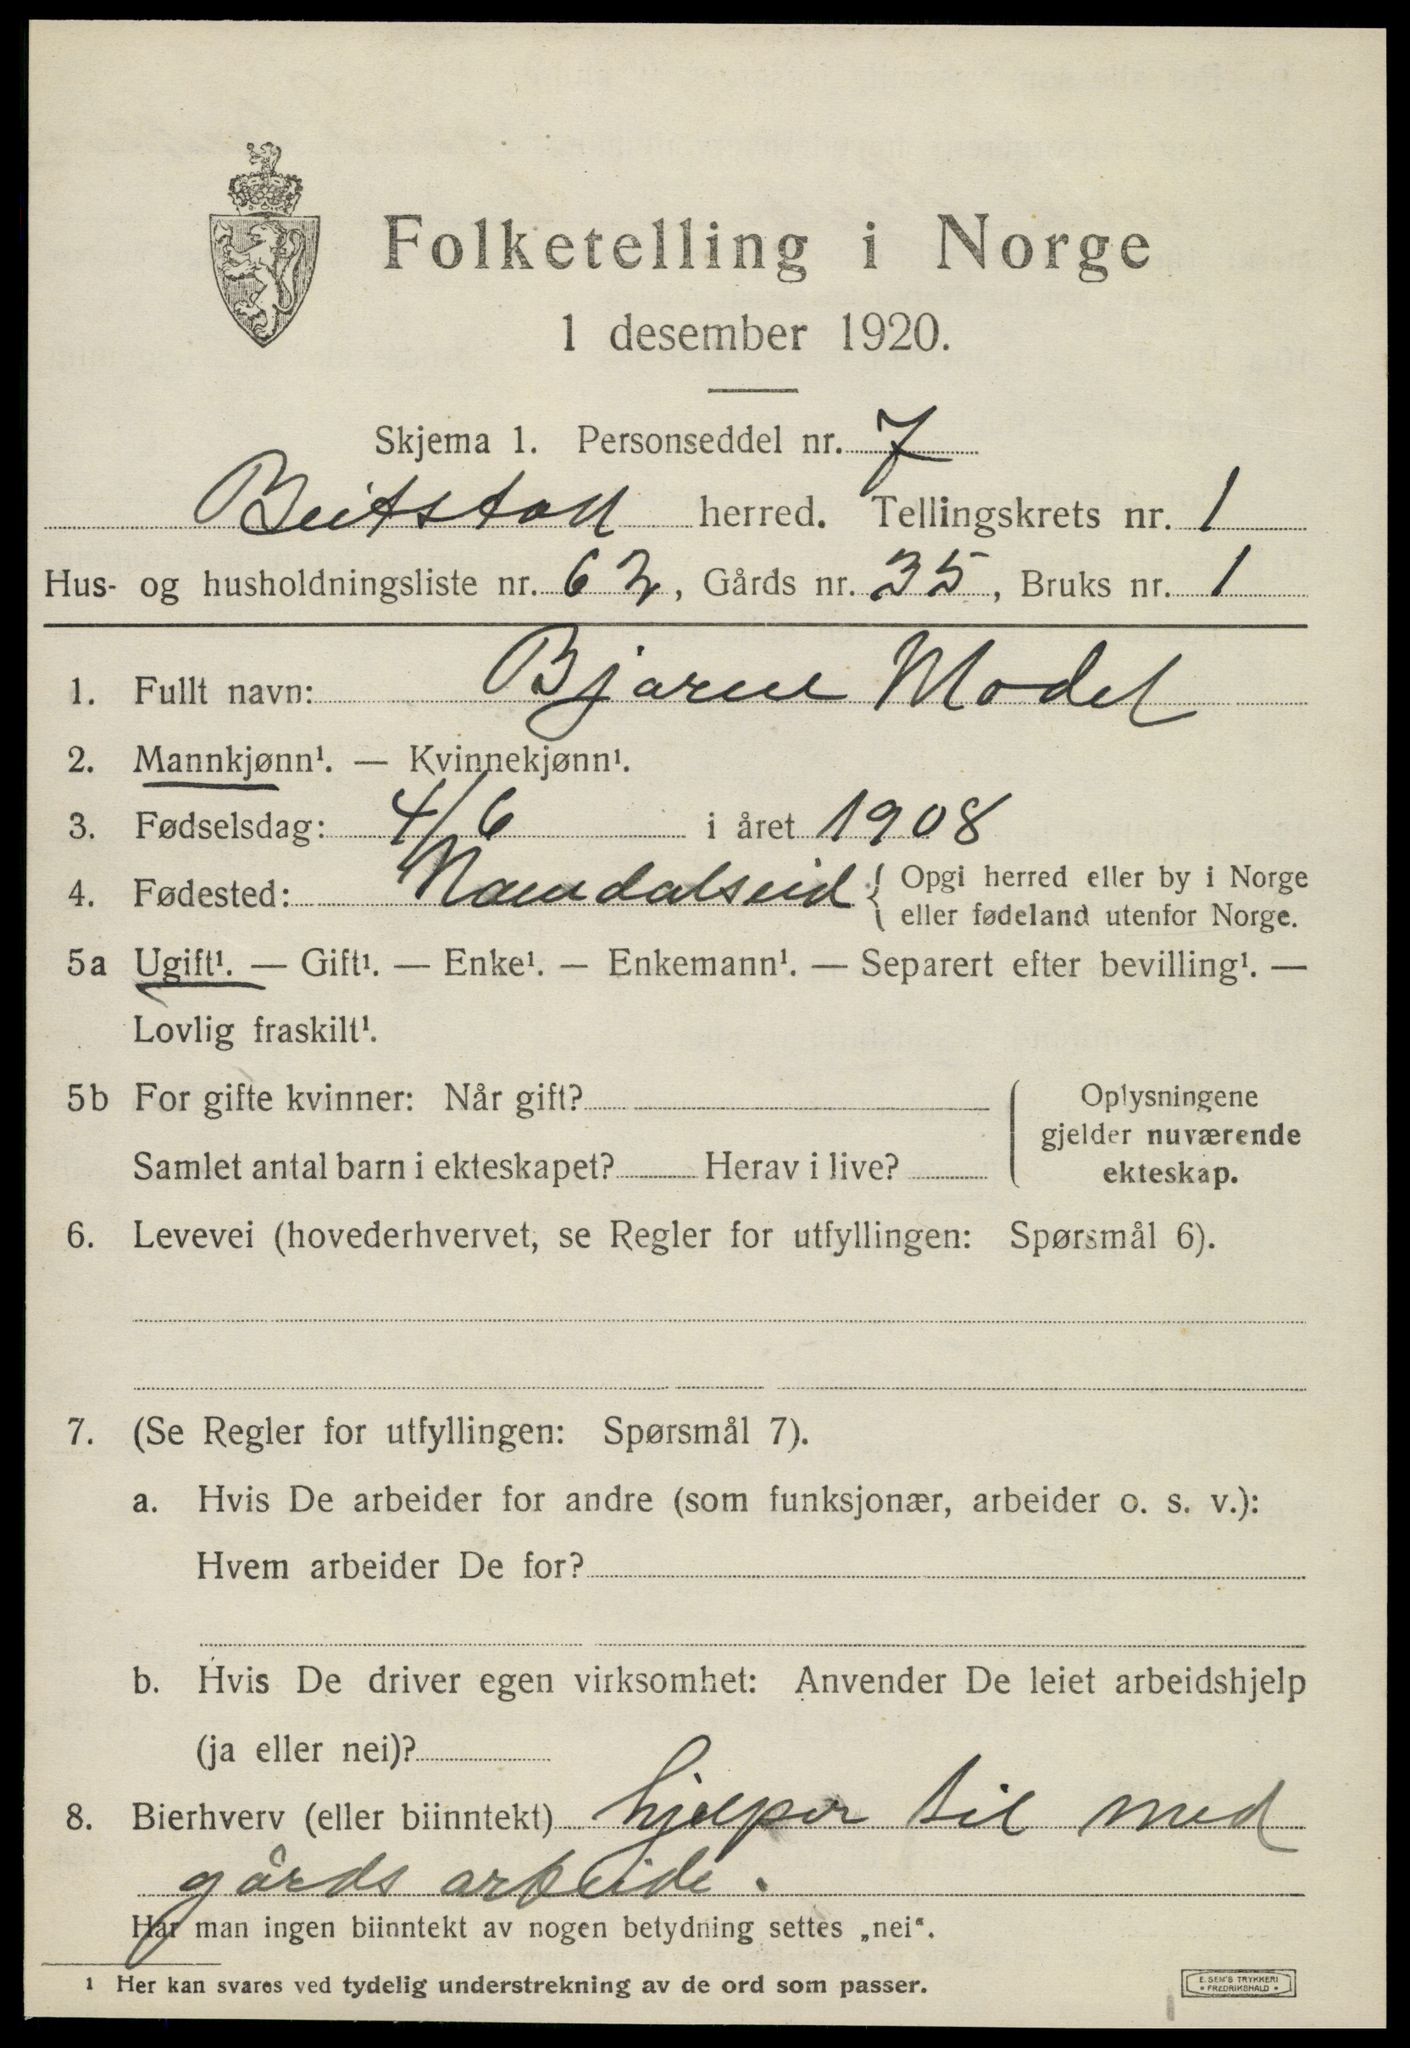 Folketelling i Norge
1 desember 1920.
Skjema 1. Personseddel nr. 7
Beitstad herred. Tellingskrets nr. 1
Hus- og husholdningsliste nr. 62, Gårds nr. 35, Bruks nr. 1
1. Fullt navn: Bjarne Model
2. Mannkjønn¹. — Kvinnekjønn¹.
3. Fødselsdag: 4/6 i året 1908
4. Fødested: Namdalseid { Opgi herred eller by i Norge
eller fødeland utenfor Norge.
5a Ugift¹. — Gift¹. — Enke¹. — Enkemann¹. — Separert efter bevilling¹. —
Lovlig fraskilt¹.
5b For gifte kvinner: Når gift?
Samlet antal barn i ekteskapet? Herav i live?
Oplysningene
gjelder nuværende
ekteskap.
6. Levevei (hovederhvervet, se Regler for utfyllingen: Spørsmål 6).
7. (Se Regler for utfyllingen: Spørsmål 7).
a. Hvis De arbeider for andre (som funksjonær, arbeider o. s. v.):
Hvem arbeider De for?
b. Hvis De driver egen virksomhet: Anvender De leiet arbeidshjelp
(ja eller nei)?
8. Bierhverv (eller biinntekt) hjelper til med
gårds arbeide.
Har man ingen biinntekt av nogen betydning settes „nei“.
¹ Her kan svares ved tydelig understrekning av de ord som passer.
E. SEM'S TRYKKERI
• FREDRIKSHALD •